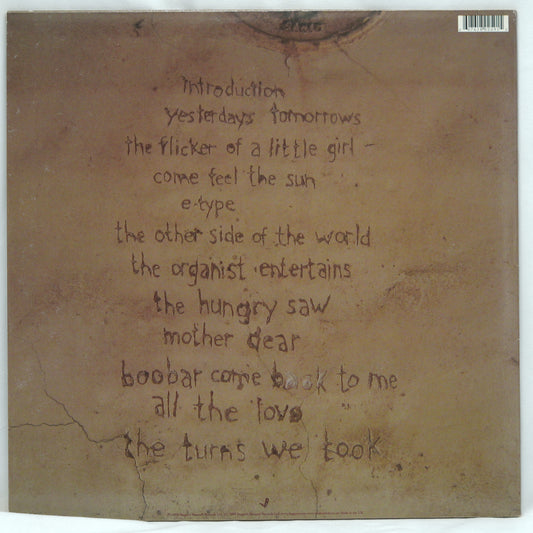 introduction
yesterdays tomorrows
the flicker of a little girl
come feel the sun
e-type
the other side of the world
the organist entertains
the hungry saw
mother dear
boobar come back to me
all the love
the turns we took